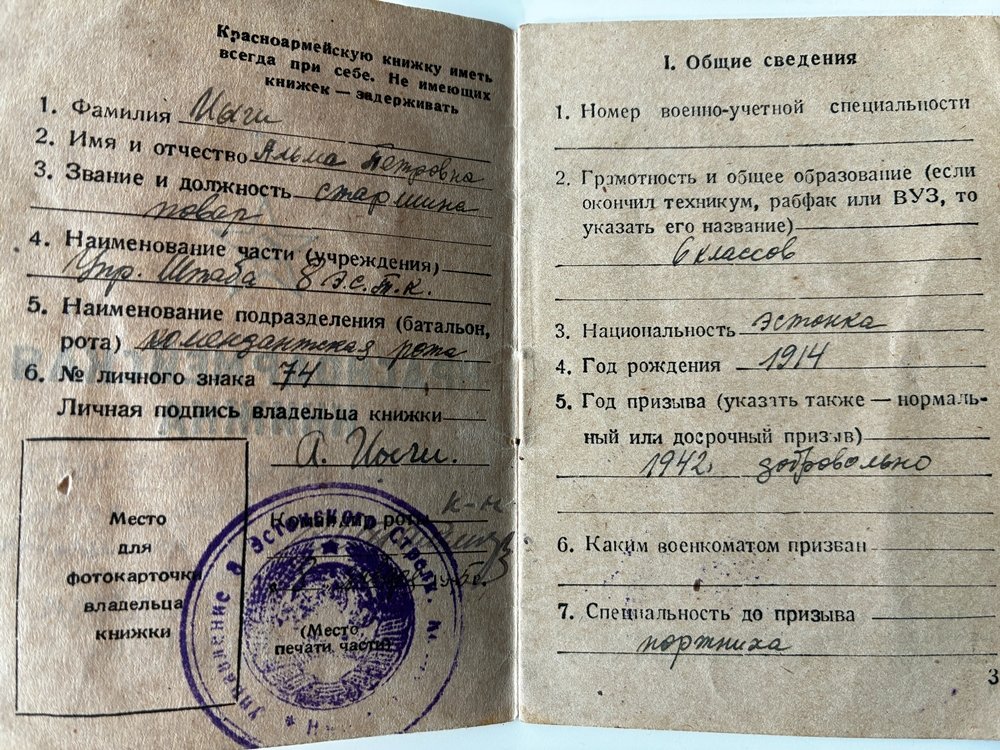 Красноармейскую книжку иметь
всегда при себе. Не имеющих
книжек — задерживать
1. Фамилия Иыги
2. Имя и отчество Альма Петровна
3. Звание и должность старшина
повар
4. Наименование части (учреждения)
Упр. Штаба 8 Э.С.К.
5. Наименование подразделения (батальон,
рота) комендантская рота
6. № личного знака 74
Личная подпись владельца книжки
А. Иыги.
Место
для
фотокарточки
владельца
книжки
Командир роты к-н
(Место
печати части)
управление 8 Эстонского Стрелк.
I. Общие сведения
1. Номер военно-учетной специальности
2. Грамотность и общее образование (если
окончил техникум, рабфак или ВУЗ, то
указать его название)
6 классов
3. Национальность эстонка
4. Год рождения 1914
5. Год призыва (указать также — нормаль-
ный или досрочный призыв)
1942. добровольно
6. Каким военкоматом призван
7. Специальность до призыва
портниха
3